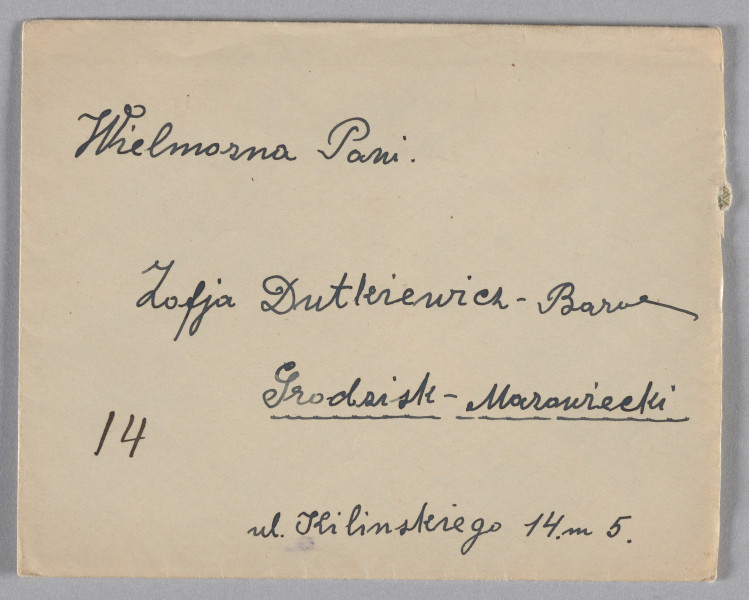 Wielmozna Pani.
Zofja Dutkiewicz-
Grodzisk-Mazowiecki
14
ul. Kilinskiego 14 m 5.